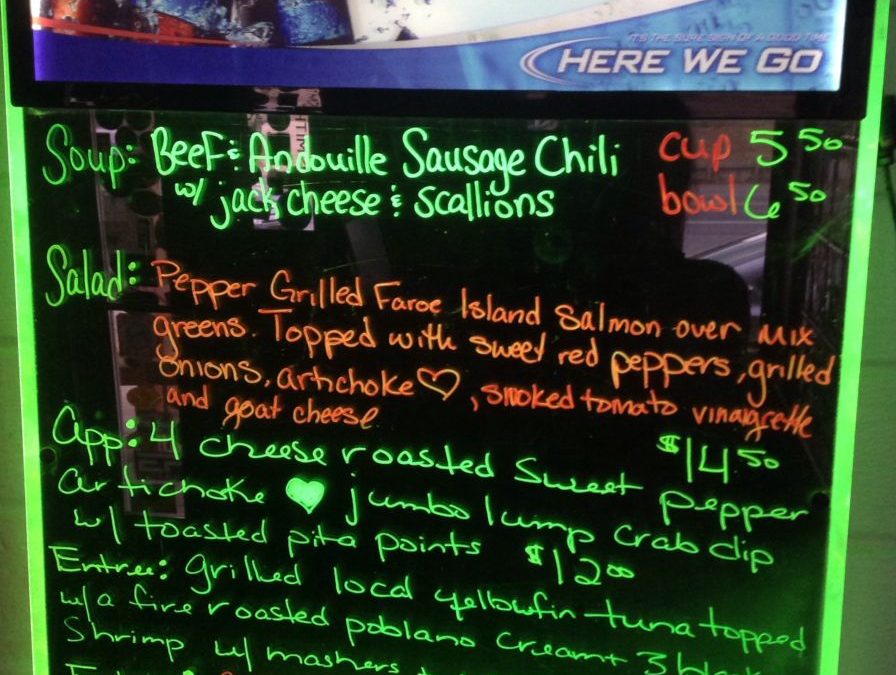 IT'S THE SURE SIGN OF A GOOD TIME
HERE WE GO
Soup: Beef & Andouille Sausage Chili cup 5 50
w/ jack cheese & scallions bowl 6 50
Salad: Pepper Grilled Faroe Island Salmon over mix
greens. Topped with sweet red peppers, grilled
onions, artichoke ♡, smoked tomato vinaigrette
and goat cheese $14 50
App: 4 cheese roasted sweet pepper
artichoke ♥ jumbo lump crab dip
w/ toasted pita points $12 00
Entree: grilled local yellowfin tuna topped
w/ a fire roasted poblano cream + 3
Shrimp w/ mashers